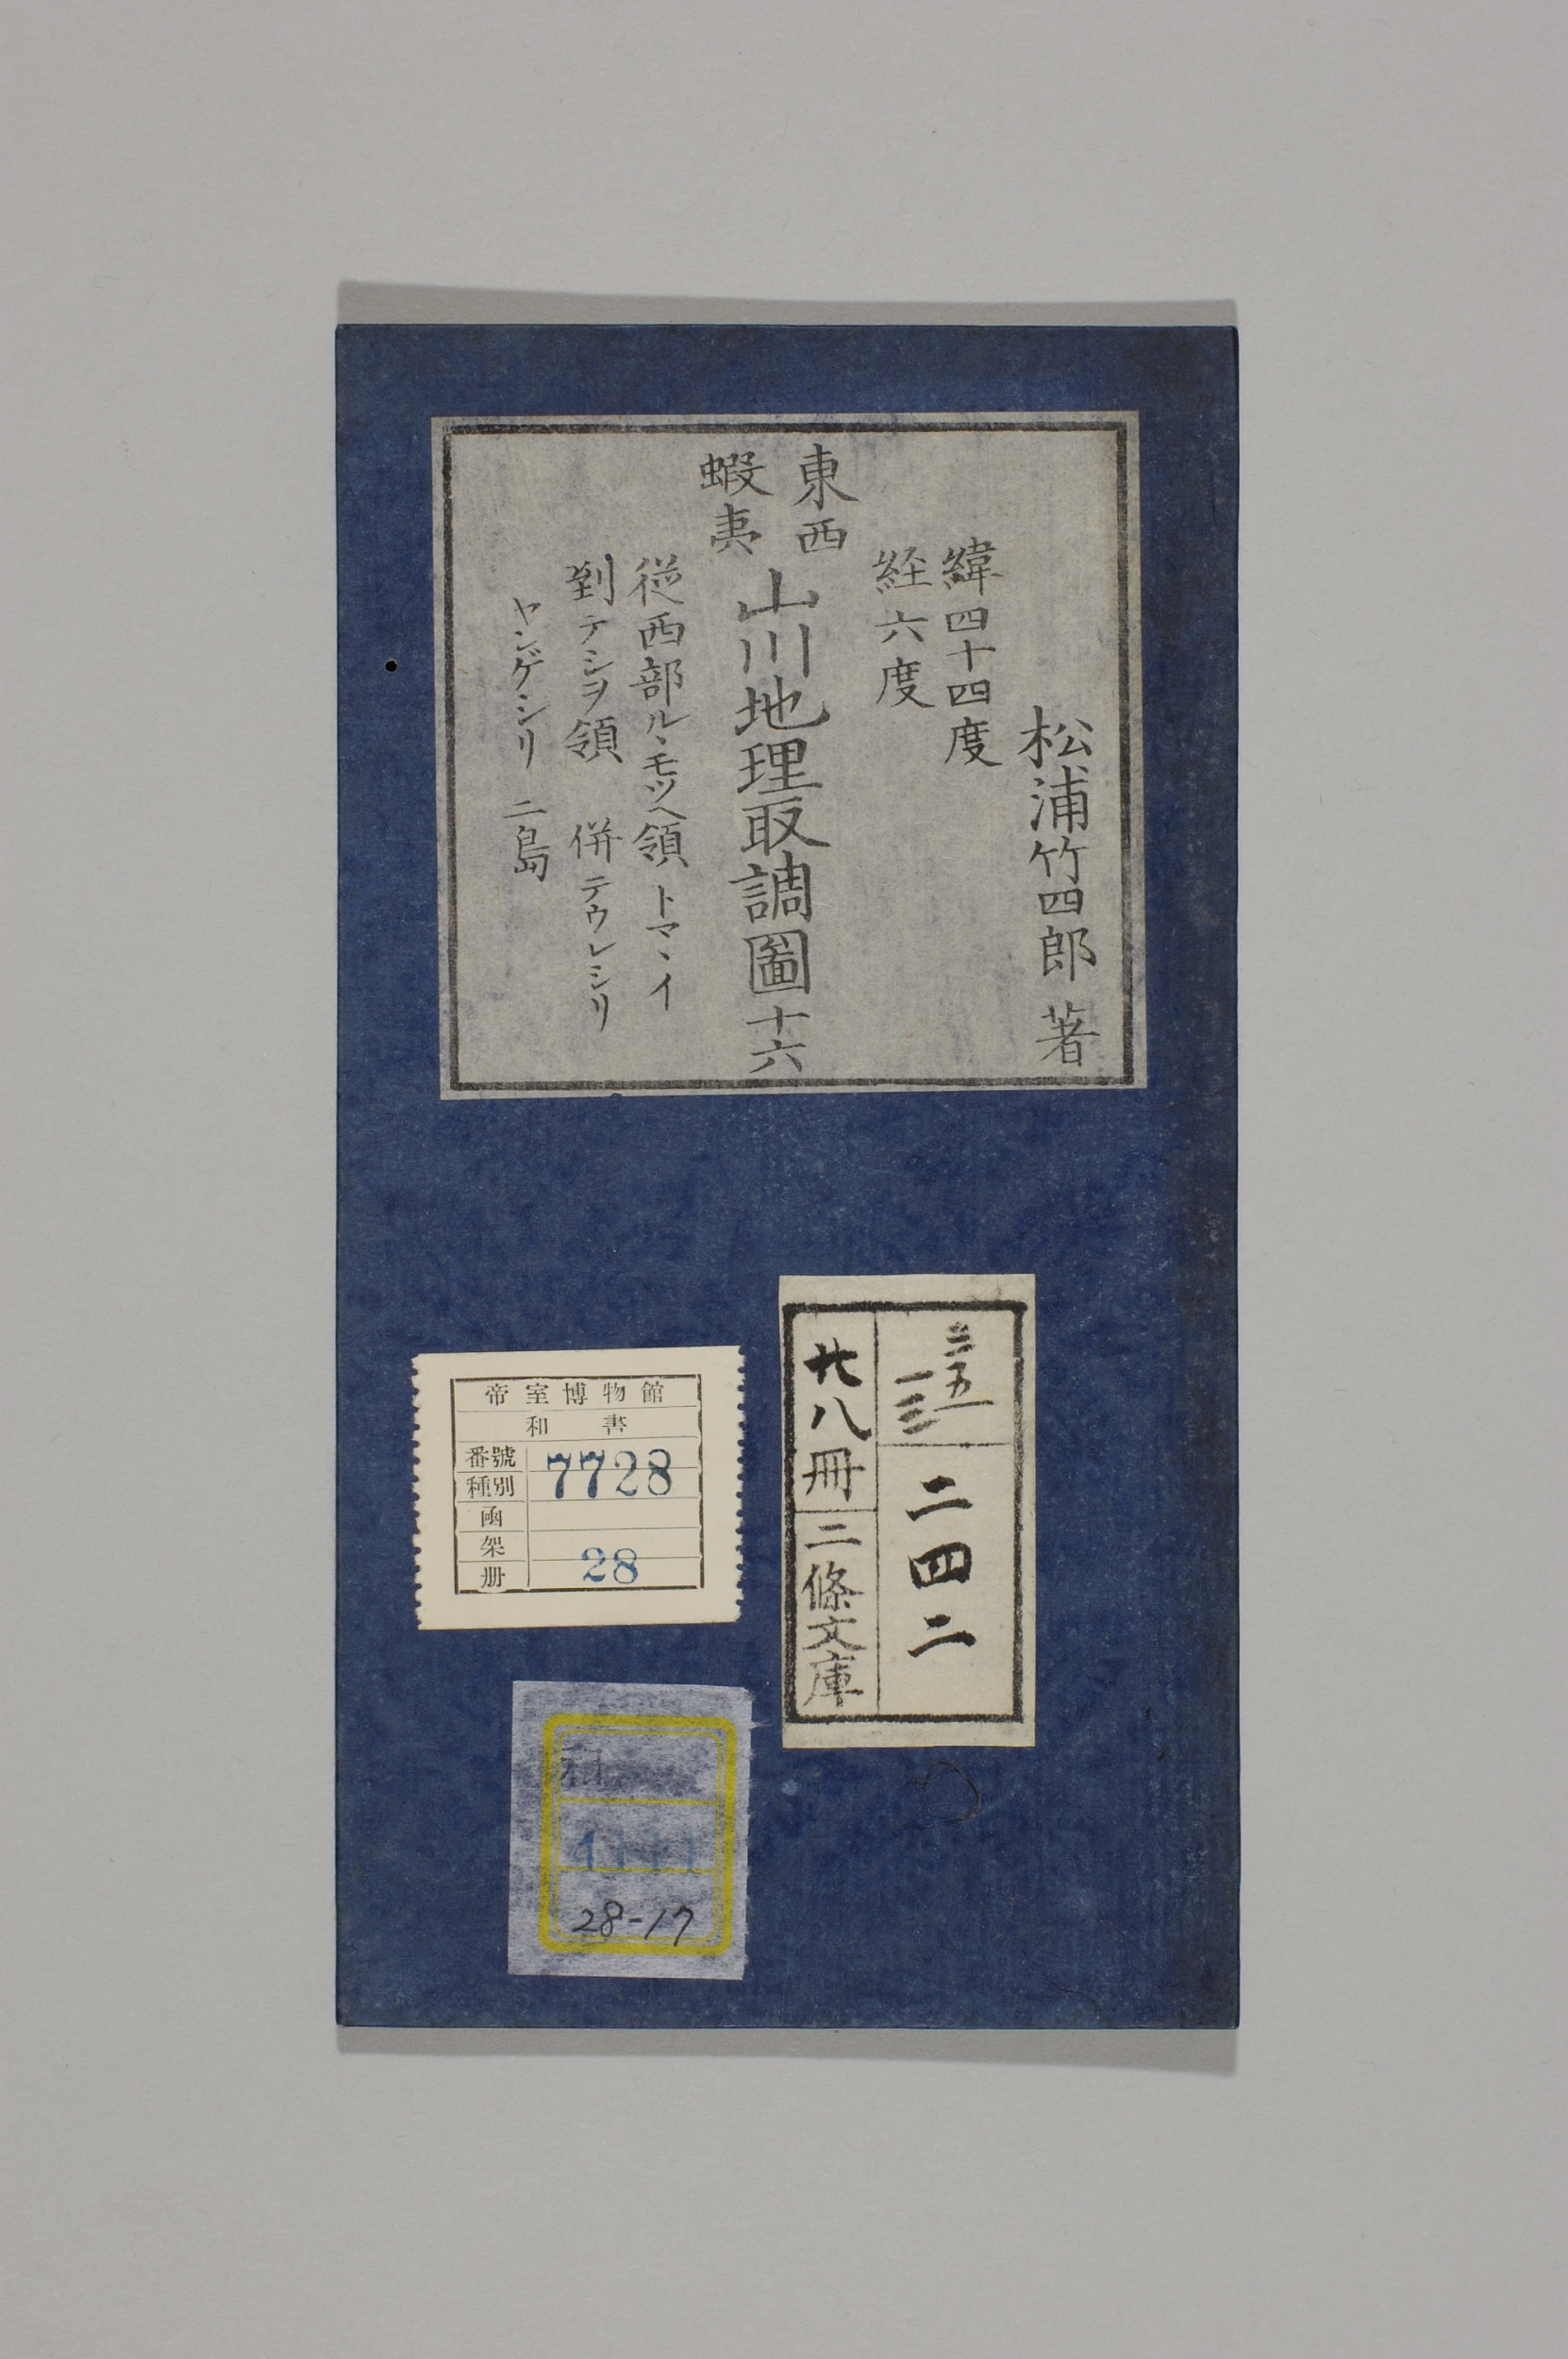 松浦竹四郎 著
緯四十四度
経六度
東西
蝦夷
山川地理取調圖十六
従西部ルヽモツヘ領トマヽイ
到テシヲ領 併テウレシリ
ヤンゲシリ 二島
二四二
廿八冊
二條文庫
帝室博物館
和書
番號 7728
種別
函
架
册 28
和
28-17